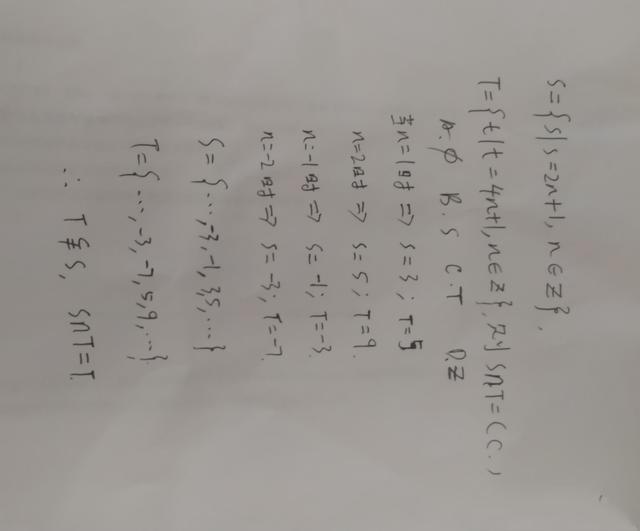 S={s|s=2n+1, n∈Z},
T={t|t=4n+1,n∈Z},则S∩T=(C.)
A.∅ B.S C.T D.Z
当n=1时=>s=3;T=5
n=2时=>s=5;T=9.
n=-1时=>s=-1;T=-3.
n=-2时=>s=-3;T=-7.
S={…,-3,-1,3,5,…}
T={…,-3,-7,5,9,…}
∴ T⫋S, S∩T=T.